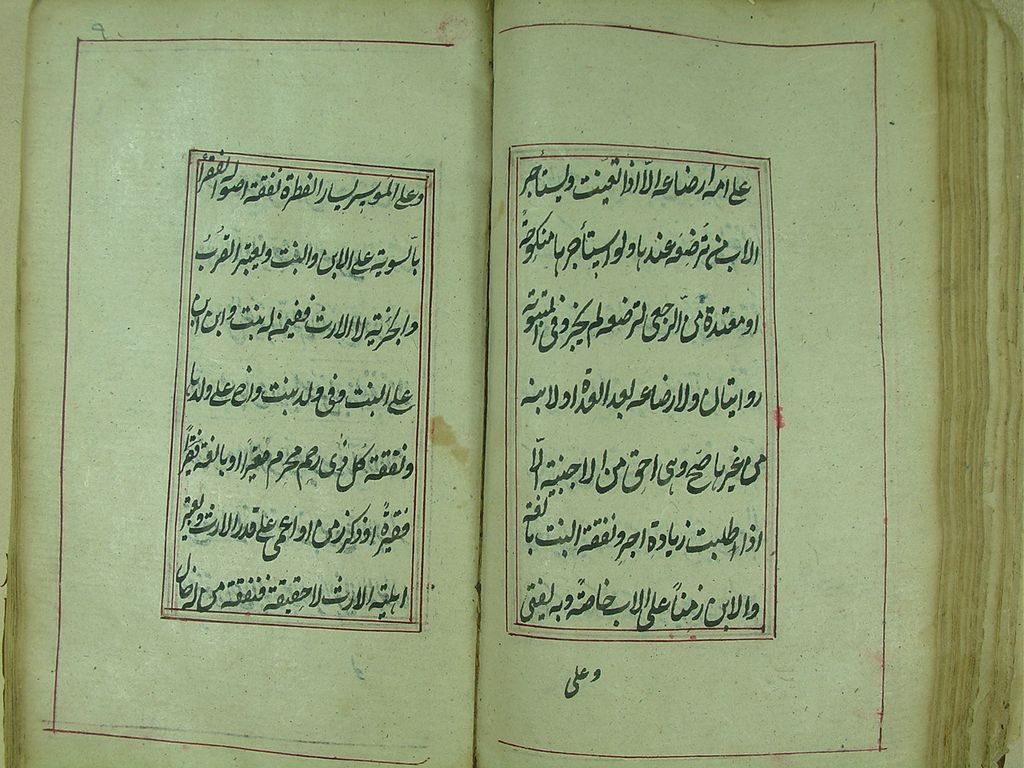 على امه ارضاعه الّا اذا تعينت ويستأجر
الاب من ترضعه عندها ولو استأجرها منكوحةً
او معتدة من الرّجعى لترضعه لم يجز وفى المبتوتة
روايتان ولارضاعه بعد العدّة او لابنه
من غيرها صح وهى احق من الاجنبية الّا
اذا طلبت زيادة اجر ونفقة البنت بالغة
والابن زمناً على الاب خاصّة وبه يفتى
وعلى
٩
وعلى الموسر يسار الفطرة نفقة اصوله الفقراء
بالسّوية على الابن والبنت ويعتبر القربُ
والجزئية لا الارث ففيمن له بنت وابن ابن
على البنت وفى ولد بنت واخ على ولدها
ونفقة كل ذى رحم محرم صغيراً او بالغة فقيراً
فقيرةً او ذكر زمن او اعمى على قدر الارث ويعتبر
اهلية الارث لا حقيقة فنفقة من له خال